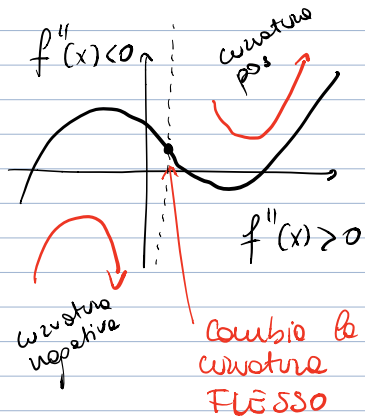 f''(x)<0
curvatura
pos
f''(x)≥0
curvatura
negativa
Cambio la
curvatura
FLESSO